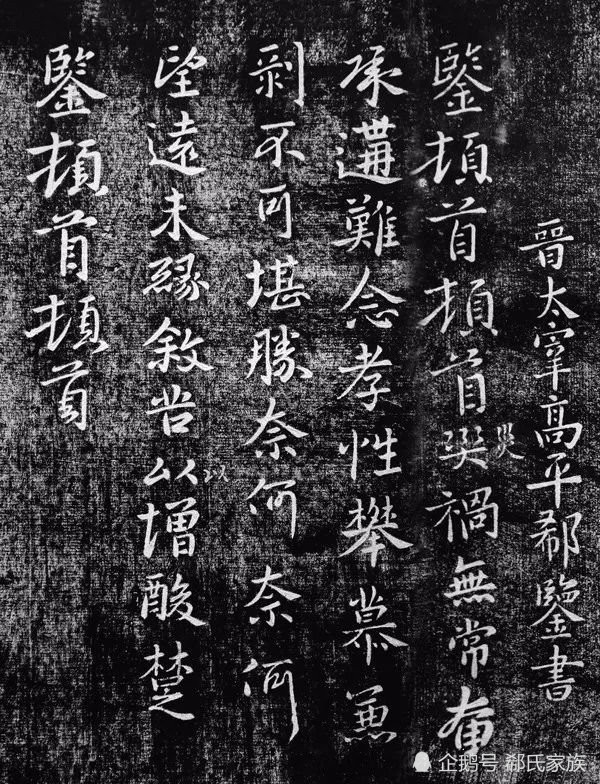 晉太宰高平郗鑒書
鑒頓首頓首災禍無常奄
災
承遘難念孝性攀慕兼
剥不可堪勝奈何奈何
望遠未緣敘苦以增酸楚
以
鑒頓首頓首
企鹅号 郗氏家族